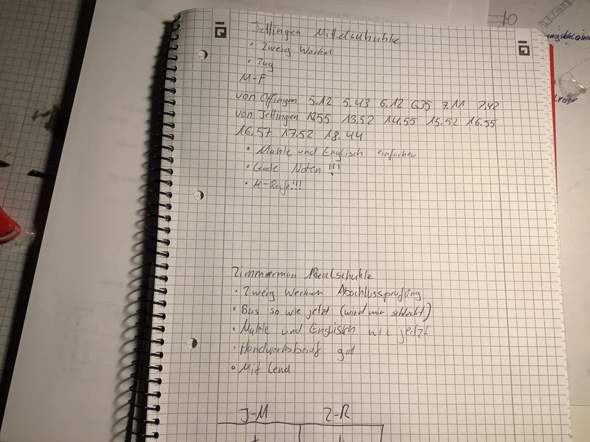 Jettingen Mittelschuhle
• Zweig Werken
• Zug
M-F
von Offingen 5.12 5.43 6.12 6.35 7.11 7.42
von Jettingen 12.55 13.52 14.55 15.52 16.55
16.57 17.52 18.44
• Mahte und Englisch einfacher
• Gute Noten !!!
• M-Reife!!!
Zimmerman Realschuhle
• Zweig Werken Abschlussprüfung
• Bus so wie jetzt (wird mir schlecht)
• Mahte und Englisch wie jetzt
• Handwerksberuf gut
• Mit Lend
J-M Z-R